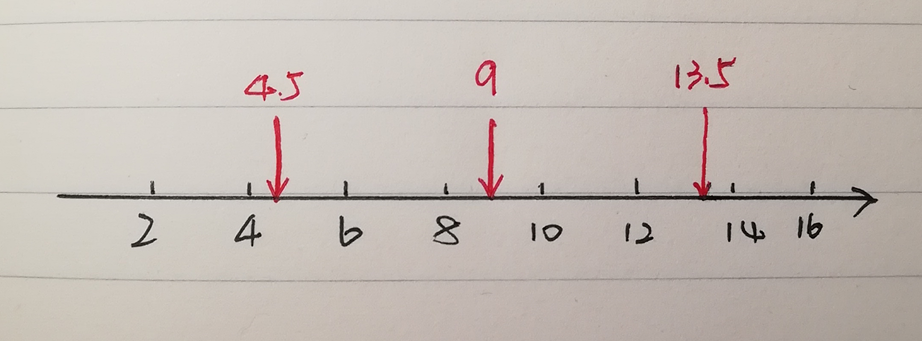 4.5 9 13.5
2 4 6 8 10 12 14 16